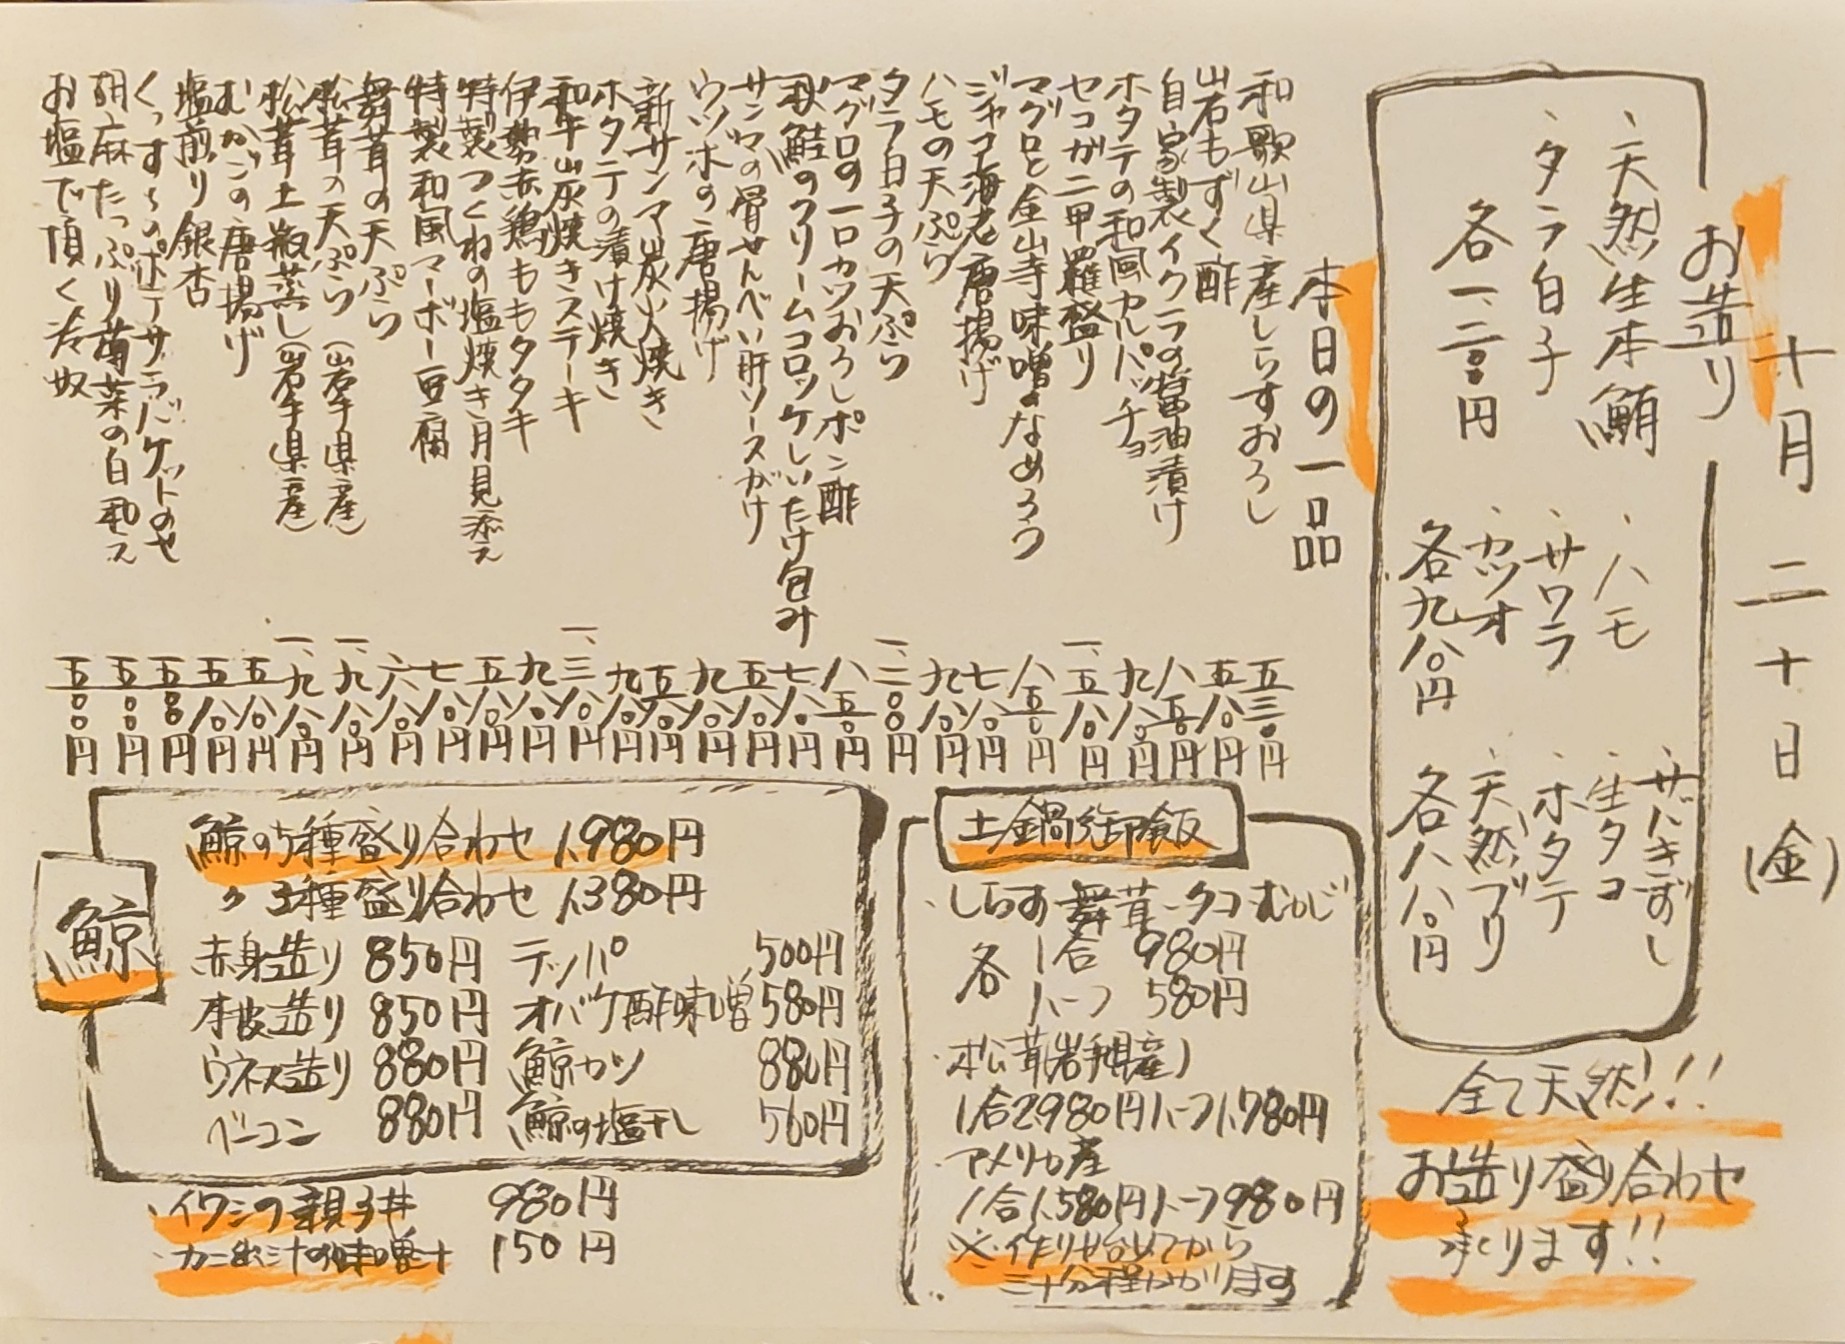 十月二十日(金)
お造り
・天然生本鮪
・タラ白子
各一、二〇〇円
・ハモ
・サワラ
・カツオ
各九八〇円
・サバきずし
・生タコ
・ホタテ
・天然ブリ
各八八〇円
全て天然!!
お造り盛り合わせ
承ります!!
本日の一品
和歌山県産しらすおろし 五三〇円
岩もずく酢 五八〇円
自家製イクラの醤油漬け 八五〇円
ホタテの和風カルパッチョ 九八〇円
セコガニ甲羅盛り 一、五八〇円
マグロと金山寺味噌なめろう 八五〇円
ジャコ海老唐揚げ 七八〇円
ハモの天ぷら 九八〇円
タラ白子の天ぷら 一、二〇〇円
マグロの一口カツおろしポン酢 八五〇円
秋鮭のクリームコロッケしいたけ包み 七八〇円
サンマの骨せんべい肝ソースがけ 五八〇円
ウツボの唐揚げ 九八〇円
新サンマ炭火焼き
ホタテの漬け焼き 九八〇円
和牛山灰焼きステーキ 一、三八〇円
伊勢赤鶏ももタタキ 九八〇円
特製つくねの塩焼き月見添え 五八〇円
特製和風マーボー豆腐 七八〇円
舞茸の天ぷら 六八〇円
松茸の天ぷら(岩手県産) 一、九八〇円
松茸土瓶蒸し(岩手県産) 一、九八〇円
むかごの唐揚げ 五八〇円
塩煎り銀杏 五八〇円
くっすぃのポテサラバケットのせ 五〇〇円
胡麻たっぷり菊菜の白和え 五〇〇円
お塩で頂く冷奴 五〇〇円
土鍋御飯
・しらす・舞茸・タコ・むかご
各 1合 980円
ハーフ 580円
・松茸(岩手県産)
1合2,980円ハーフ1,780円
アメリカ産
1合1,580円ハーフ980円
※作り始めてから
三十分程かかります
鯨
鯨の5種盛り合わせ 1,980円
〃 3種盛り合わせ 1,380円
赤身造り 850円 テッパ 500円
本皮造り 850円 オバケ酢味噌 580円
ウネス造り 880円 鯨カツ 880円
ベーコン 880円 鯨の塩干し 560円
・イワシの親子丼 980円
・カニ出汁の味噌汁 150円